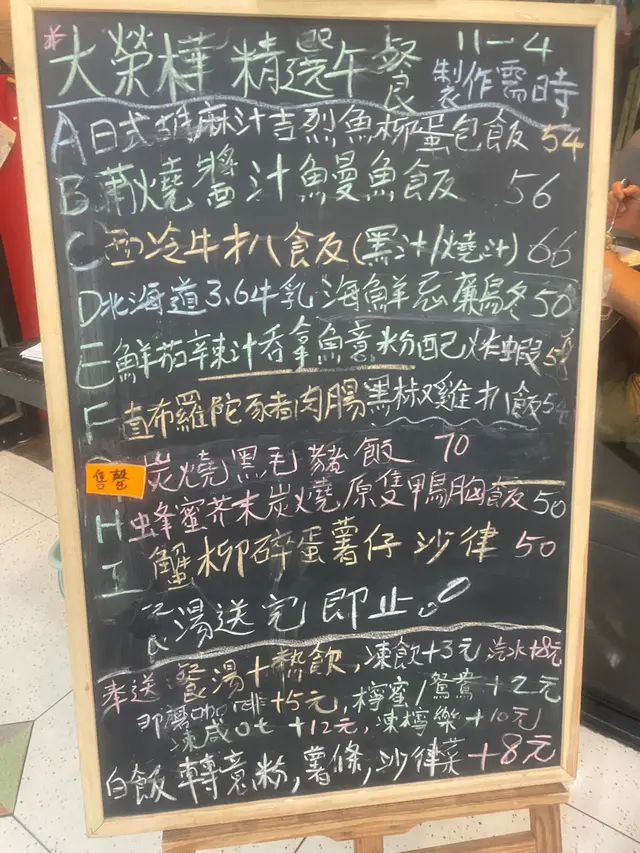 *大榮樺 精選午餐 11-4
製作需時
A日式胡麻汁吉烈魚柳蛋包飯 54
B蒲燒醬汁鰻魚飯 56
C西冷牛扒飯(黑汁/燒汁) 66
D北海道3.6牛乳海鮮忌廉烏冬 50
E鮮茄辛辣汁吞拿魚意粉配炸蝦
F直布羅陀豬肉腸黑椒雞扒飯
售罄 炭燒黑毛豬飯 70
H蜂蜜芥末炭燒原隻鴨胸飯 50
I 蟹柳碎蛋薯仔沙律 50
湯送完即止
奉送 餐湯+熱飲,凍飲+3元 汽水+8元
即磨咖啡+5元,檸蜜/鴛鴦+2元
凍咸 +12元,凍檸樂+10元
白飯轉意粉,薯條,沙律菜+8元